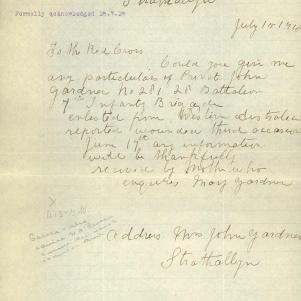 Strathallyn
Formally acknowledged 18.7.18
July 15 1918
To the Red Cross
Could you give me
any particulars of Private John
Gardner No 281 28 Battalion
7th Infantry Brigade
enlisted from Western Australia
reported wounded third occasion
June 19th any information
will be thankfully
received by mother who
enquires Mary Gardner
Address Mrs John Gardner
Strathallyn